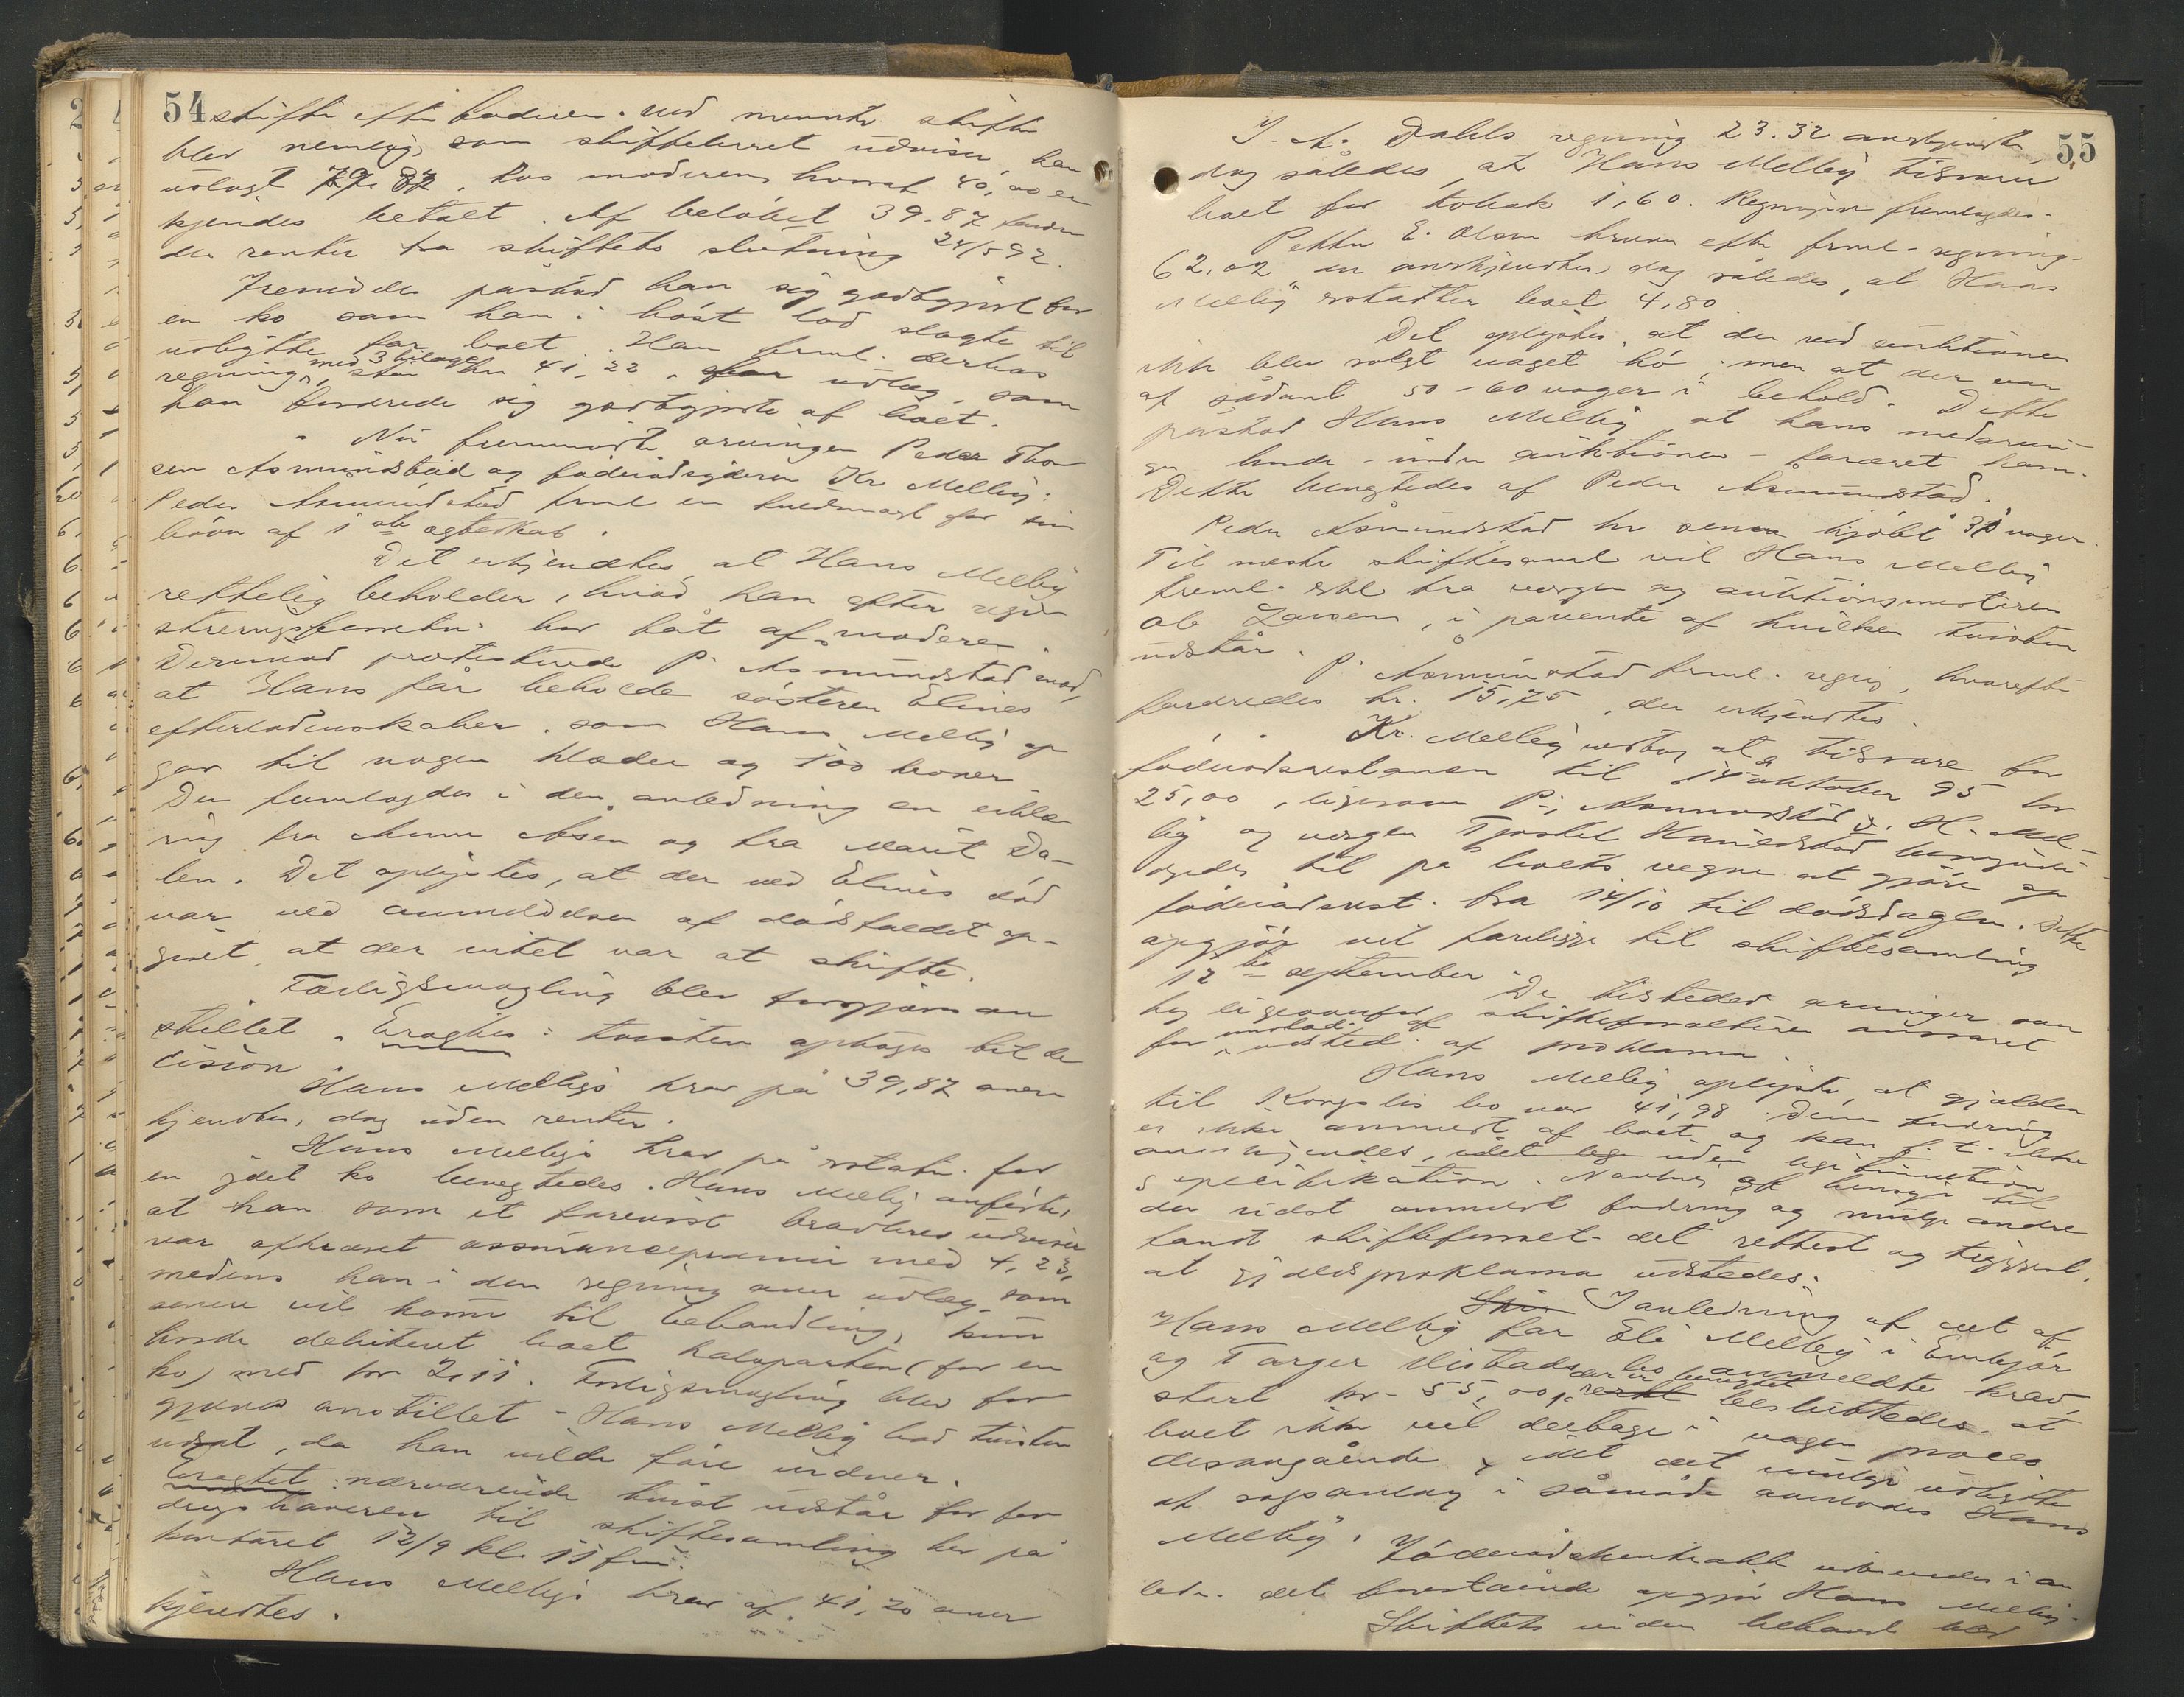 54
skifte efter faderen. Ved nævnte skifte
blev nemlig, som skiftebrevet udviser, han
udlagt 79.87 hos moderen, hvoraf 40,00 er
kjendes betalt. Af beløbet 39.87 fordre
des renter fra skiftets slutning 24/5 92.
Fremdeles påstod han sig godtgjort for
en ko som han i høst lod slagte til
udbytte for boet. Han freml. derhos
regning, med 3 bilage, stor kr 41,22, for udlæg, som
han fordrede sig godtgjorte af boet.
Nu fremmødte arvingen Peder Thor
sen Asmundstad og føderådsyderen Kr Melby.
Peder Asmundstad freml en fuldmagt for sin
børn af 1ste ægteskab.
Det erkjendtes, at Hans Melby
rettelig beholder, hvad han efter regi
streringsforretn. har fåt af moderen.
Derimod protesterede P. Asmundstad mod,
at Hans får beholde søsteren Elines
efterladenskaber, som Hans Melby op
gav til nogen klæder og 100 kroner
Der fremlagdes i den anledning en erklæ
ring fra Anne Aasen og fra Marit Da-
len. Det oplystes, at der ved Elines død
var ved anmeldelsen af dødsfaldet op-
givet, at der intet var at skifte.
Forligsmægling blev forgjæves an
stillet. Eragtes: tvisten optages til de
cision
Hans Melbys krav på 39,87 aner
kjendtes, dog uden renter.
Hans Melbys krav på erstatn. for
en ydet ko benegtedes. Hans Melby anførte,
at han som et forevist kravbrev udviser
var afkrævet assurancepræmie med 4,23,
medens han i den regning over udlæg, som
senere vil komme til behandling, kun
havde debiteret boet halvparten (for en
ko) med kr 2,11. Forligsmægling blev for
gjæves anstillet - Hans Melby bad tvisten
udsat, da han vilde føre vidner.
Eragtet: nærværende tvist udstår for for
dringshaveren til skiftesamling her på
kontoret 12/9 kl. 11 fm.
Hans Melbys krav af 41,20 aner
kjendtes.
55
J. A. Dahls regning 23.32 anerkjendtes,
dog således, at Hans Melby tilsvarer
boet for tobak 1,60. Regningen fremlagdes.
Petter E. Olsen krever efter freml. regning
62,02, der anerkjendtes, dog således, at Hans
Melby erstatter boet 4,80.
Det oplystes, at der ved auktionen
ikke blev solgt noget hø; men at der var
af sådant 50-60 voger i behold. Dette
påstod Hans Melby, at hans medarvin
ger havde - under auktionen - foræret ham.
Dette benegtedes af Peder Asmundstad.
Peder Asmundstad har senere kjøbt 30 voger.
Til næste skiftesaml vil Hans Melby
freml. erkl fra vergen og auktionsmesteren
Ole Larsen, i påvente af hvilken tvisten
udstår.
P. Asmundstad freml. regng, hvorefter
fordredes kr. 15,75, der erkjendtes.
Kr. Melby vedtog at tilsvare for
føderådsrestancen til 14 oktober 95 kr
25,00, ligesom P. Asmundstad, H. Mel-
by og vergen Tjostel Haugstad bemyndi-
gedes til på boets vegne at gjøre op
føderådsrest. fra 14/10 til dødsdagen. Dette
opgjør vil foreligge til skiftesamling
12te september. De tilstedev arvinger var
hg ligeoverfor skifteforvalteren ansvaret
for undlad. af udsted. af proklama.
Hans Melby oplyste, at gjælden
til Kongslis bo var 41,98. Denne fordring
er ikke anmeldt af boet og kan f.t. ikke
anerkjendes, uden legitimation
specifikation. Navnlig af hensyn til
den sidst anmeldt fordring og mulige andre
fandt skifteforvalt. det rettest og tryggest,
at gjældsproklama udstedes.
I anledning af det af
Hans Melby for Eli Melby i Embjør
og Torger Ulistads bo anmeldte krav,
stort kr. 55,00, der er benegtet besluttedes, at
boet ikke vil deltage i nogen proces
desangående, idet det mulige udbytte
af søgsmålet i såmåde overlodes Hans
Melby. Føderådskontrakt udlevedes i an
ledn. det forestående opgjør Hans Melby.
Skiftets videre behandl blev